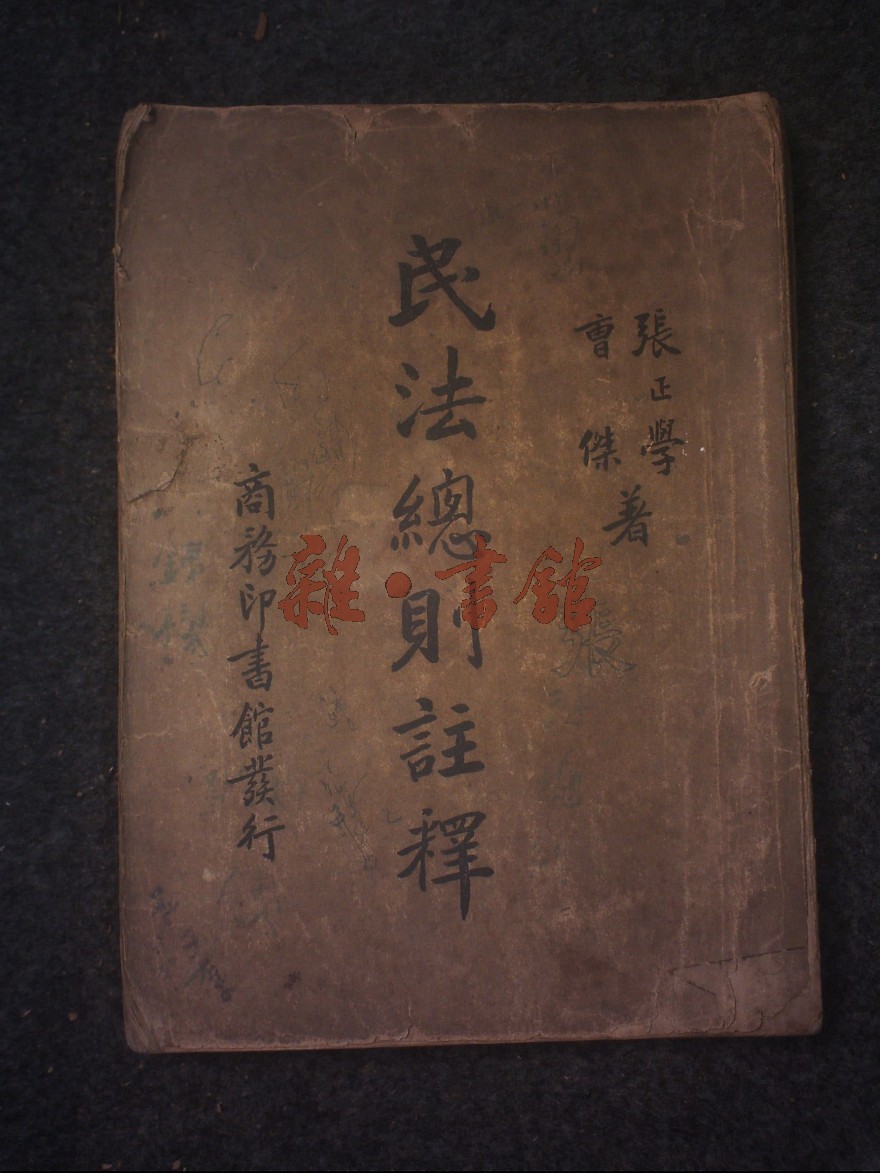 張正學
曹傑
著
民法總則註釋
商務印書館發行
雜·書館
張